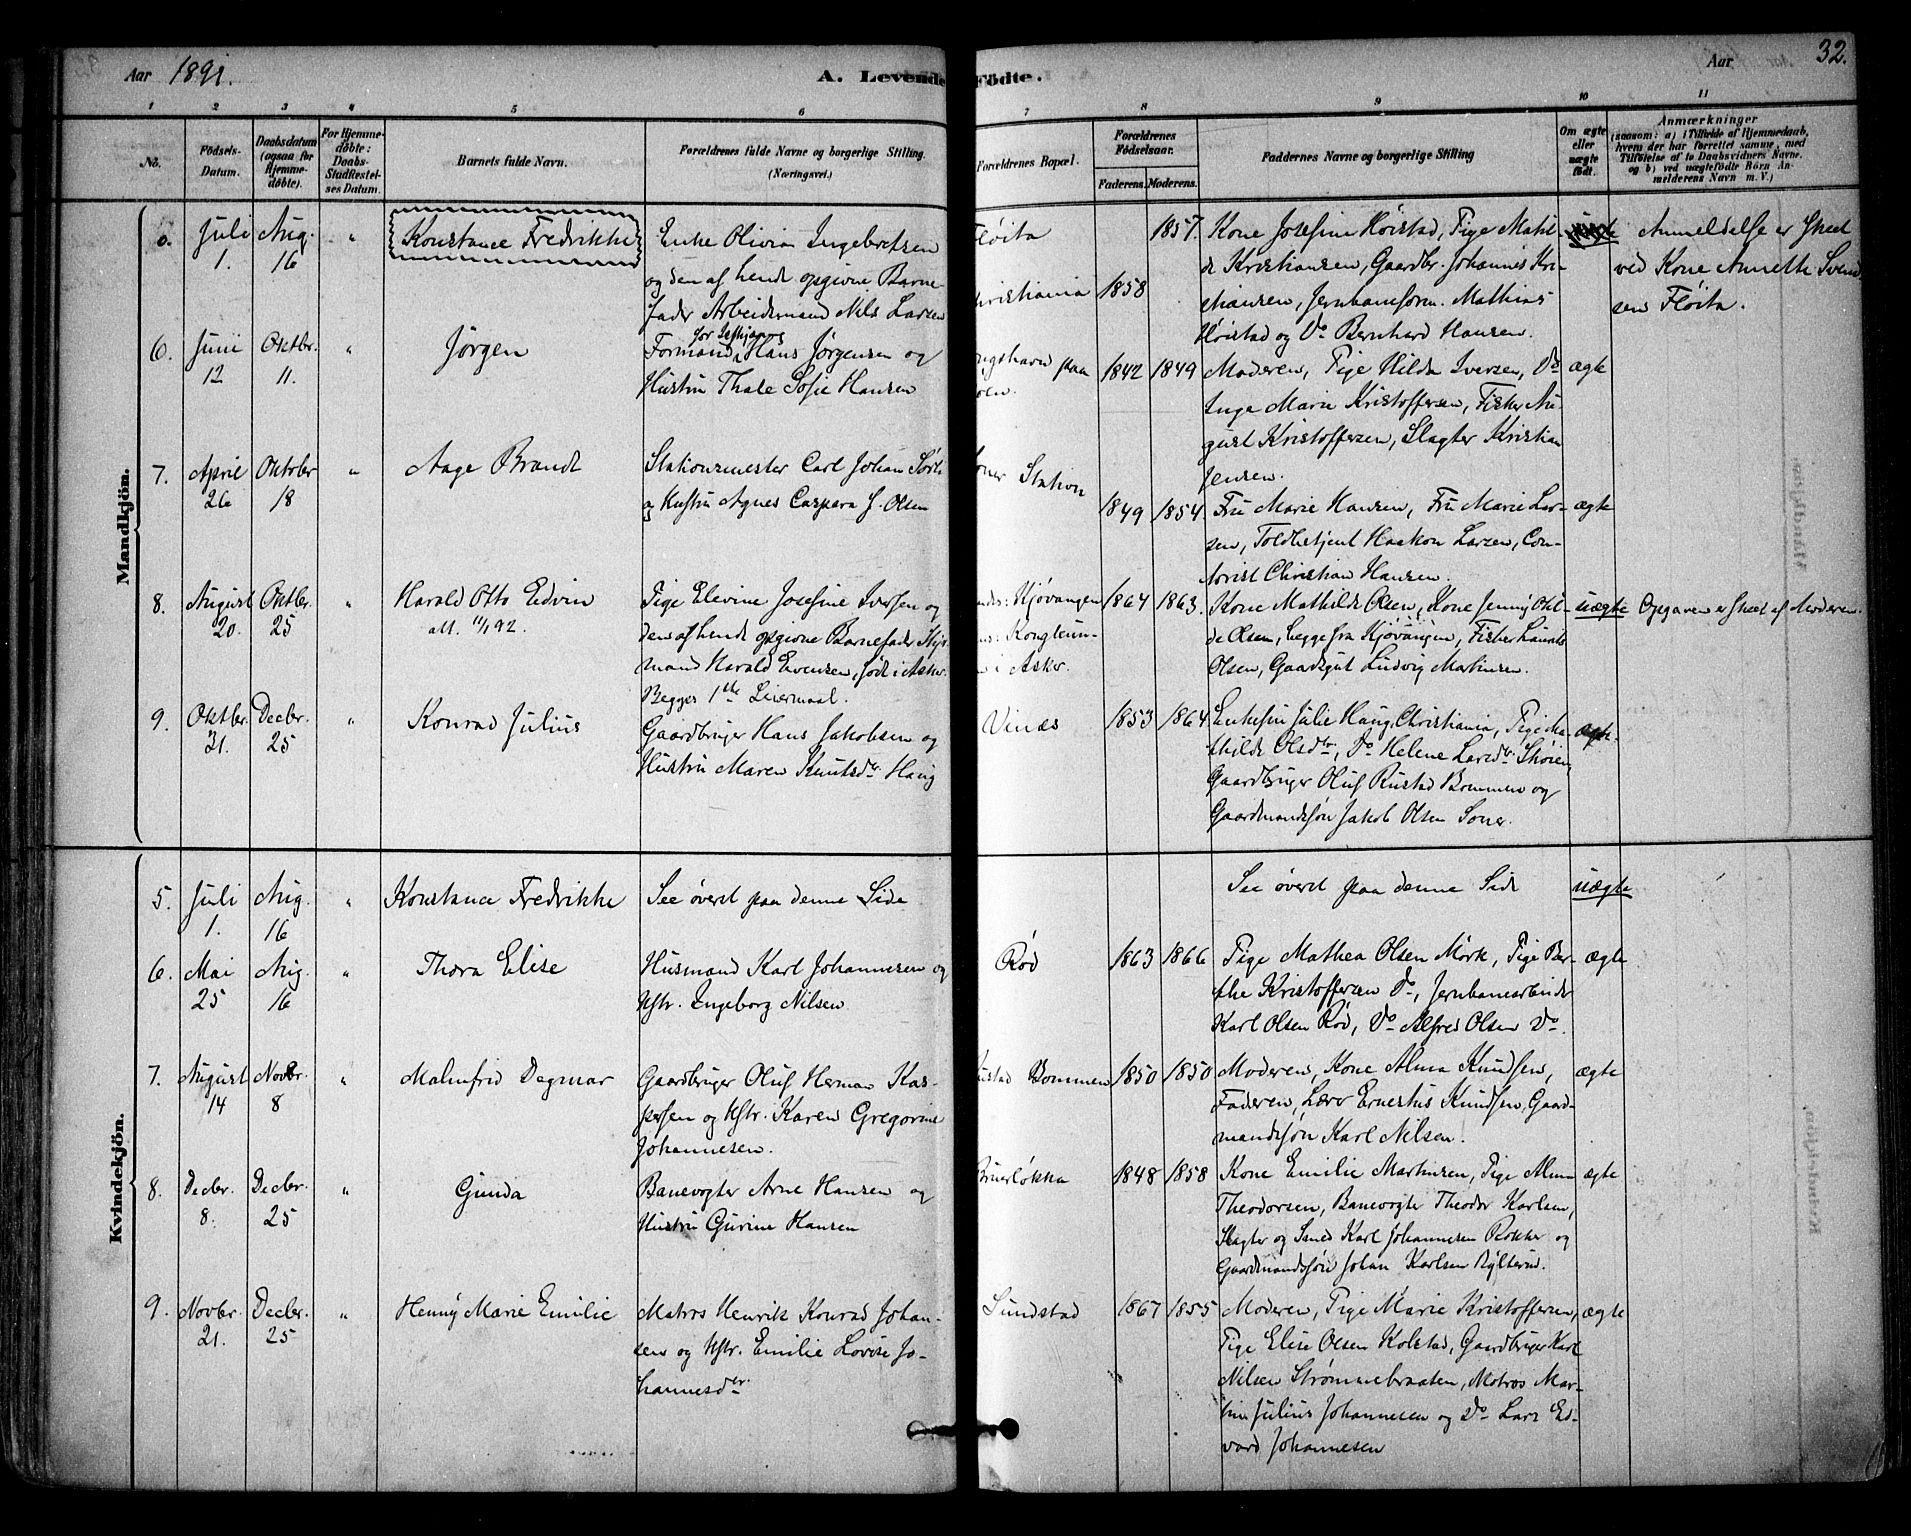 Aar 1891.
A. Levende Födte.
Aar
32.
1 2 3 4 5 6 7 8 9 10 11
No.
Födsels-Datum.
Daabsdatum (ogsaa for Hjemmedöbte).
For Hjemmedöbte: Daabs-Stadfæstelses Datum.
Barnets fulde Navn.
Forældrenes fulde Navne og borgerlige Stilling.
(Næringsvei.)
Forældrenes Bopæl.
Forældrenes Födselsaar.
Faderens. Moderens.
Faddernes Navne og borgerlige Stilling
Om ægte eller uægte födt.
Anmærkninger
(saasom: a) i Tilfælde af Hjemmedaab,
hvem der har forrettet samme, med
Tilföielse af to Daabsvidners Navne.
og b) ved uægtefödte Börn An-
melderens Navn m. V.)
Mandkjön.
Juli 1. Aug. 16 " Konstance Fredrikke
Enke Olivia Ingebretsen
og den af hende opgivne Barne-
fader Arbeidsmand Nils Larsen
Fløita
Christiania 1858 1857.
Kone Josefine Høistad, Pige Mathil-
de Kristiansen, Gaardbr. Johannes Kri-
stiansen, Jernbaneform. Mathias
Høistad og Do Bernhard Hansen.
Anmeldelse er skeet
ved Kone Annette Svend
sen Fløita.
6. Juni 12 Oktbr. 11. " Jørgen
Formand Hans Jørgensen og
Hustru Thale Sofie Hansen
1842 1849
Moderen, Pige Hilda Iversen, Do
Inga Marie Kristoffersen, Fisker Au-
gust Kristoffersen, Slagter Kristian
Jensen.
ægte
7. April 26 Oktober 18 " Aage Brandt
Stationsmester Carl Johan
og Hustru Agnes Caspara J. Olsen
Station
1849 1854
Fru Marie Hansen, Fru Marie Lar-
sen, Toldbetjent Haakon Larsen, Con-
torist Christian Hansen.
ægte
8. August 20. Oktbr. 25 " Harald Otto Edvin
att. 11/1 92.
Pige Elevine Josefine Iversen og
den af hende opgivne Barnefader
mand Harald Evensen, født i Asker.
Begges 1ste Leiermaal.
Kjøvangen
i Asker.
1864 1863.
Kone Mathilde Olsen, Kone Jenny Otil-
de Olsen, begge fra Kjøvangen, Fisker Laurits
Olsen, Gaardsgut Ludvig Martinsen.
uægte Opgaven er skeet af Moderen.
9. Oktbr. 31. Decbr. 25 " Konrad Julius
Gaardbruger Hans Jakobsen og
Hustru Maren Knutsdtr. Haug
Vinæs 1853 1864
Enkefru Julie Haug, Christiania, Pige Ma-
thilde Olsdtr, Do Helene Larsdtr.
Gaardbruger Oluf Rustad Bommen og
Gaardmandssøn Jakob Olsen Soner.
ægte.
Kvindekjön.
5. Juli 1. Aug. 16 " Konstance Fredrikke
See øverst paa denne Side
See øverst paa denne Side uægte
6. Mai 25 Aug. 16 " Thora Elise
Husmand Karl Johannesen og
Hstr. Ingeborg Nilsen
Rød 1863 1866
Pige Mathea Olsen Mørk, Pige Ber-
the Kristoffersen Do, Jernbanearbeider
Karl Olsen Rød, Do Alfred Olsen Do.
ægte
7. August 14 Novbr. 8 " Malmfrid Dagmar
Gaardbruger Oluf Herman Kas-
persen og Hstr. Karen Gregorine
Johannesen.
Rustad Bommen 1850 1850
Moderen, Kone Alma Knudsen,
Faderen, Lærer Ernestus Knudsen, Gaard-
mandssøn Karl Nilsen.
ægte
8. Decbr. 8. Decbr. 25 " Gunda
Banevogter Arne Hansen og
Hustru Gurine Hansen
Bruerløkka 1848 1858
Kone Emilie Martinsen, Pige Alma
Theodorsen, Banevogter Theodor Karlsen,
Slagter og Smed Karl Johannesen Rokker og
Gaardmandssøn Johan Karlsen
ægte
9. Novbr. 21. Decbr. 25 " Henny Marie Emilie
Matros Henrik Konrad Johan-
sen og Hstr. Emilie Lovise Jo-
hannesdtr.
Sundstad 1867 1855
Moderen, Pige Marie Kristoffersen,
Pige Elise Olsen Kolstad, Gaardbruger Karl
Nilsen Strømmebraaten, Matros Mar-
tin Julius Johannesen og Do Lars Ed-
vard Johannesen
ægte